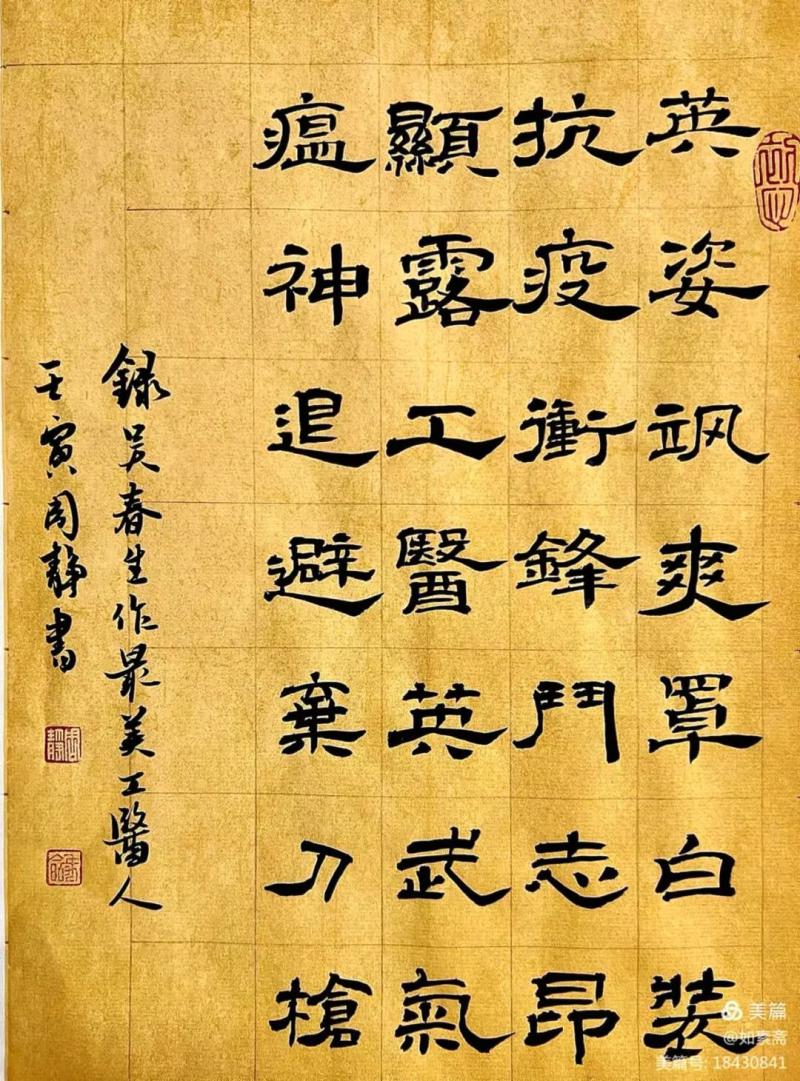 英姿颯爽罩白裝
抗疫衝鋒鬥志昂
顯露工醫英武氣
瘟神退避棄刀槍
錄吴春生作最美工醫人
壬寅周靜書
周靜
美篇
@如素斋
美篇号: 18430841